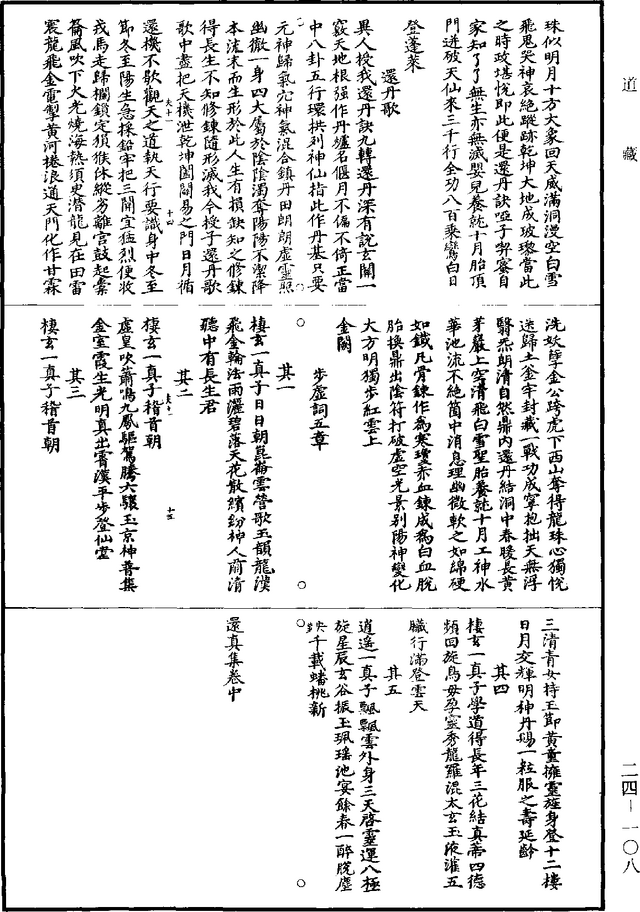 道藏
珠似明月十方大象回天威滿洞漫空白雪
飛鬼哭神哀絕蹤跡乾坤大地成玻瓈當此
之時政堪悅即此便是還丹訣啞子喫蜜自
家知了了無生亦無滅嬰兒養就十月胎頂
門迸破天仙來三千行全功八百乘鸞白日
登蓬萊
還丹歌
異人授我還丹訣九轉還丹深有說玄關一
竅天地根強作丹爐名偃月不偏不倚正當
中八卦五行環拱列神仙指此作丹基只要
元神歸氣穴神氣混合鎮丹田朗朗虛靈照
幽微一身四大屬於陰陰濁奪陽陽不潔降
本流末而生形於此人生有損缺知之修鍊
得長生不知修鍊隨形滅我今授子還丹歌
歌中盡把天機泄乾坤闔闢易之門日月循
還機不歇觀天之道執天行要識身中冬至
節冬至陽生急採鉛牢把三關宜猛烈便收
戎馬走歸欄鎖定猿猴休縱劣離宮鼓起橐
籥風吹下火光燒海熱須臾潛龍見在田雷
震龍飛金電掣黃河捲浪道天門化作甘霖
洗妖孽金公跨虎下西山奪得龍珠心獨悅
送歸土釜牢封藏一戰功成寧抱拙天無浮
翳炁朗清自然鼎內還丹結洞中春暖長黃
茅巖上空清飛白雪聖胎養就十月工神水
華池流不絕箇中消息理幽微軟之如綿硬
如鐵凡骨鍊作為寒瓊赤血鍊成為白血脫
胎換鼎出陰符打破虛空光景別陽神變化
大方明獨步紅雲上
金闕
步虛詞五章
其一
棲玄一真子日日朝崑崙雲營歌玉韻龍濮
飛金輪法雨灑碧落天花散繽紛神人前清
聽中有長生君
其二
棲玄一真子稽首朝
虛皇吹簫鳴九鳳驅駕騰六驤玉京神眷集
金室霞生光明真出霄漢平步登仙堂
其三
棲玄一真子稽首朝
三清青女持玉節黃童擁靈旌身登十二樓
日月交輝明神丹賜一粒服之壽延齡
其四
棲玄一真子學道得長年三花結真蒂四德
頻回旋烏毋孕靈秀龍羅混太玄玉液灌五
臟行滿登雲天
其五
逍遙一真子飄飄雲外身三天啓靈運八極
旋星辰玄谷振玉珮瑤池宴餘春一醉脫塵
鞅千載蟠桃新
還真集卷中
二四—一〇八